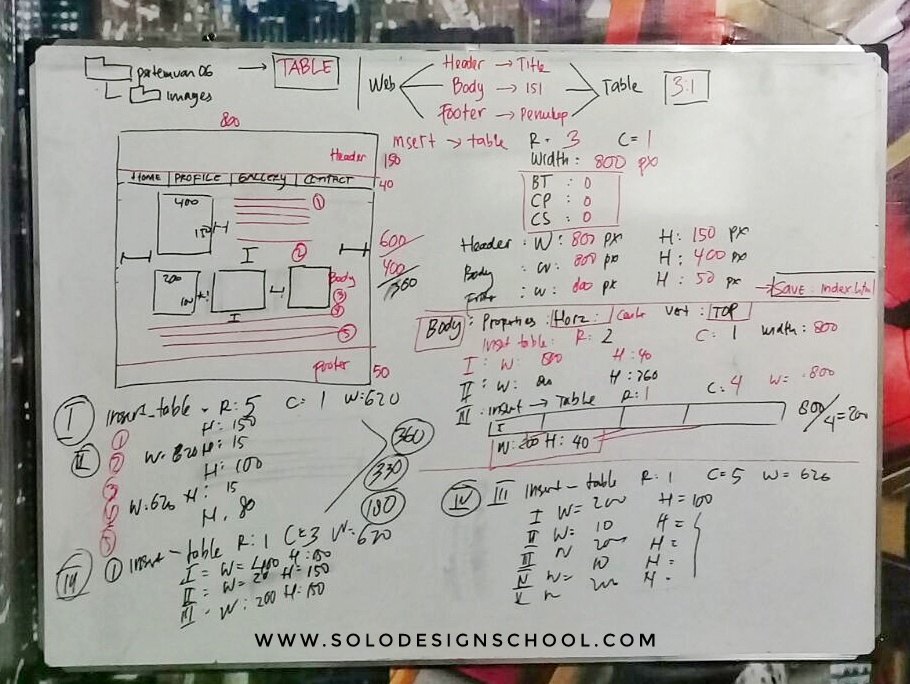 pertemuan 06 → TABLE
images
Web
Header → Title
Body → ISI
Footer → Penutup
Table 3:1
800
Header 150
HOME PROFILE GALLERY CONTACT 40
400
150
I
1
2
600
400
360
200
100
I
Body
3
4
5
Footer 50
Insert → table R = 3 C = 1
Width : 800 px
BT : 0
CP : 0
CS : 0
Header : W : 800 px H : 150 px
Body : W : 800 px H : 400 px
Footer : W : 800 px H : 50 px
→ Save : index.html
Body : Properties : Horz : Center Vert : TOP
Insert table : R : 2 C : 1 Width : 800
I : W : 800 H : 40
II : W : 800 H : 360
III : Insert → Table R : 1 C : 4 W = 800
I
800/4 = 200
W : 200 H : 40
I Insert_table - R : 5 C : 1 W : 620
II
1 H : 150
2 W : 620 H : 15
3 H : 100
4 W : 620 H : 15
5 H : 80
360
330
180
III 1 Insert - table R : 1 C = 3 W = 620
I = W = 400 H : 150
II = W = 20 H = 150
III = W : 200 H : 150
IV III Insert - table R : 1 C = 5 W = 620
I W = 200 H = 100
II W = 10 H =
III W 200 H =
IV W = 10 H =
V W 200 H =
WWW.SOLODESIGNSCHOOL.COM